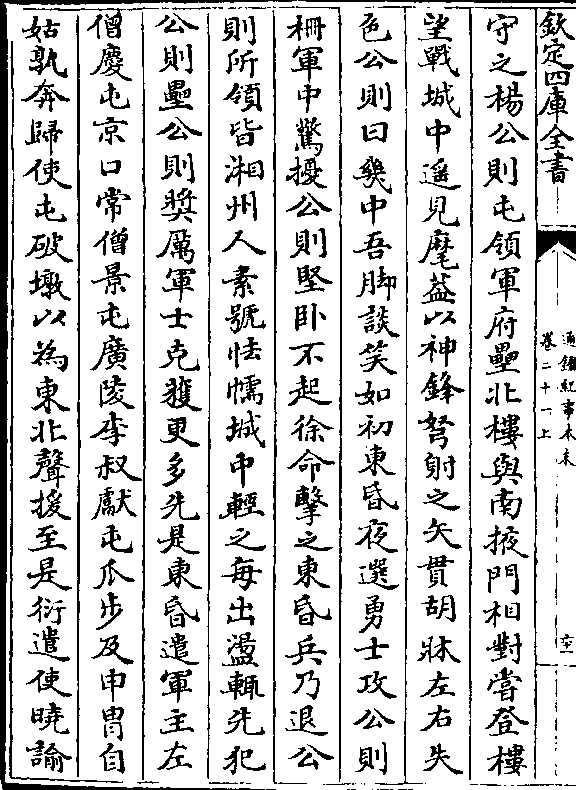 欽定四庫全書
通鑑紀事本末
卷二十一上
六十
守之楊公則屯領軍府壘北樓與南掖門相對嘗登樓
望戰城中遥見麾蓋以神鋒弩射之矢貫胡牀左右失
色公則曰幾中吾脚談笑如初東昏夜選勇士攻公則
柵軍中驚擾公則堅卧不起徐命擊之東昏兵乃退公
則所領皆湘州人素號怯懦城中輕之每出盪輒先犯
公則壘公則奬厲軍士克獲更多先是東昏遣軍主左
僧慶屯京口常僧景屯廣陵李叔獻屯瓜步及申胄自
姑孰奔歸使屯破墩以為東北聲援至是衍遣使曉諭